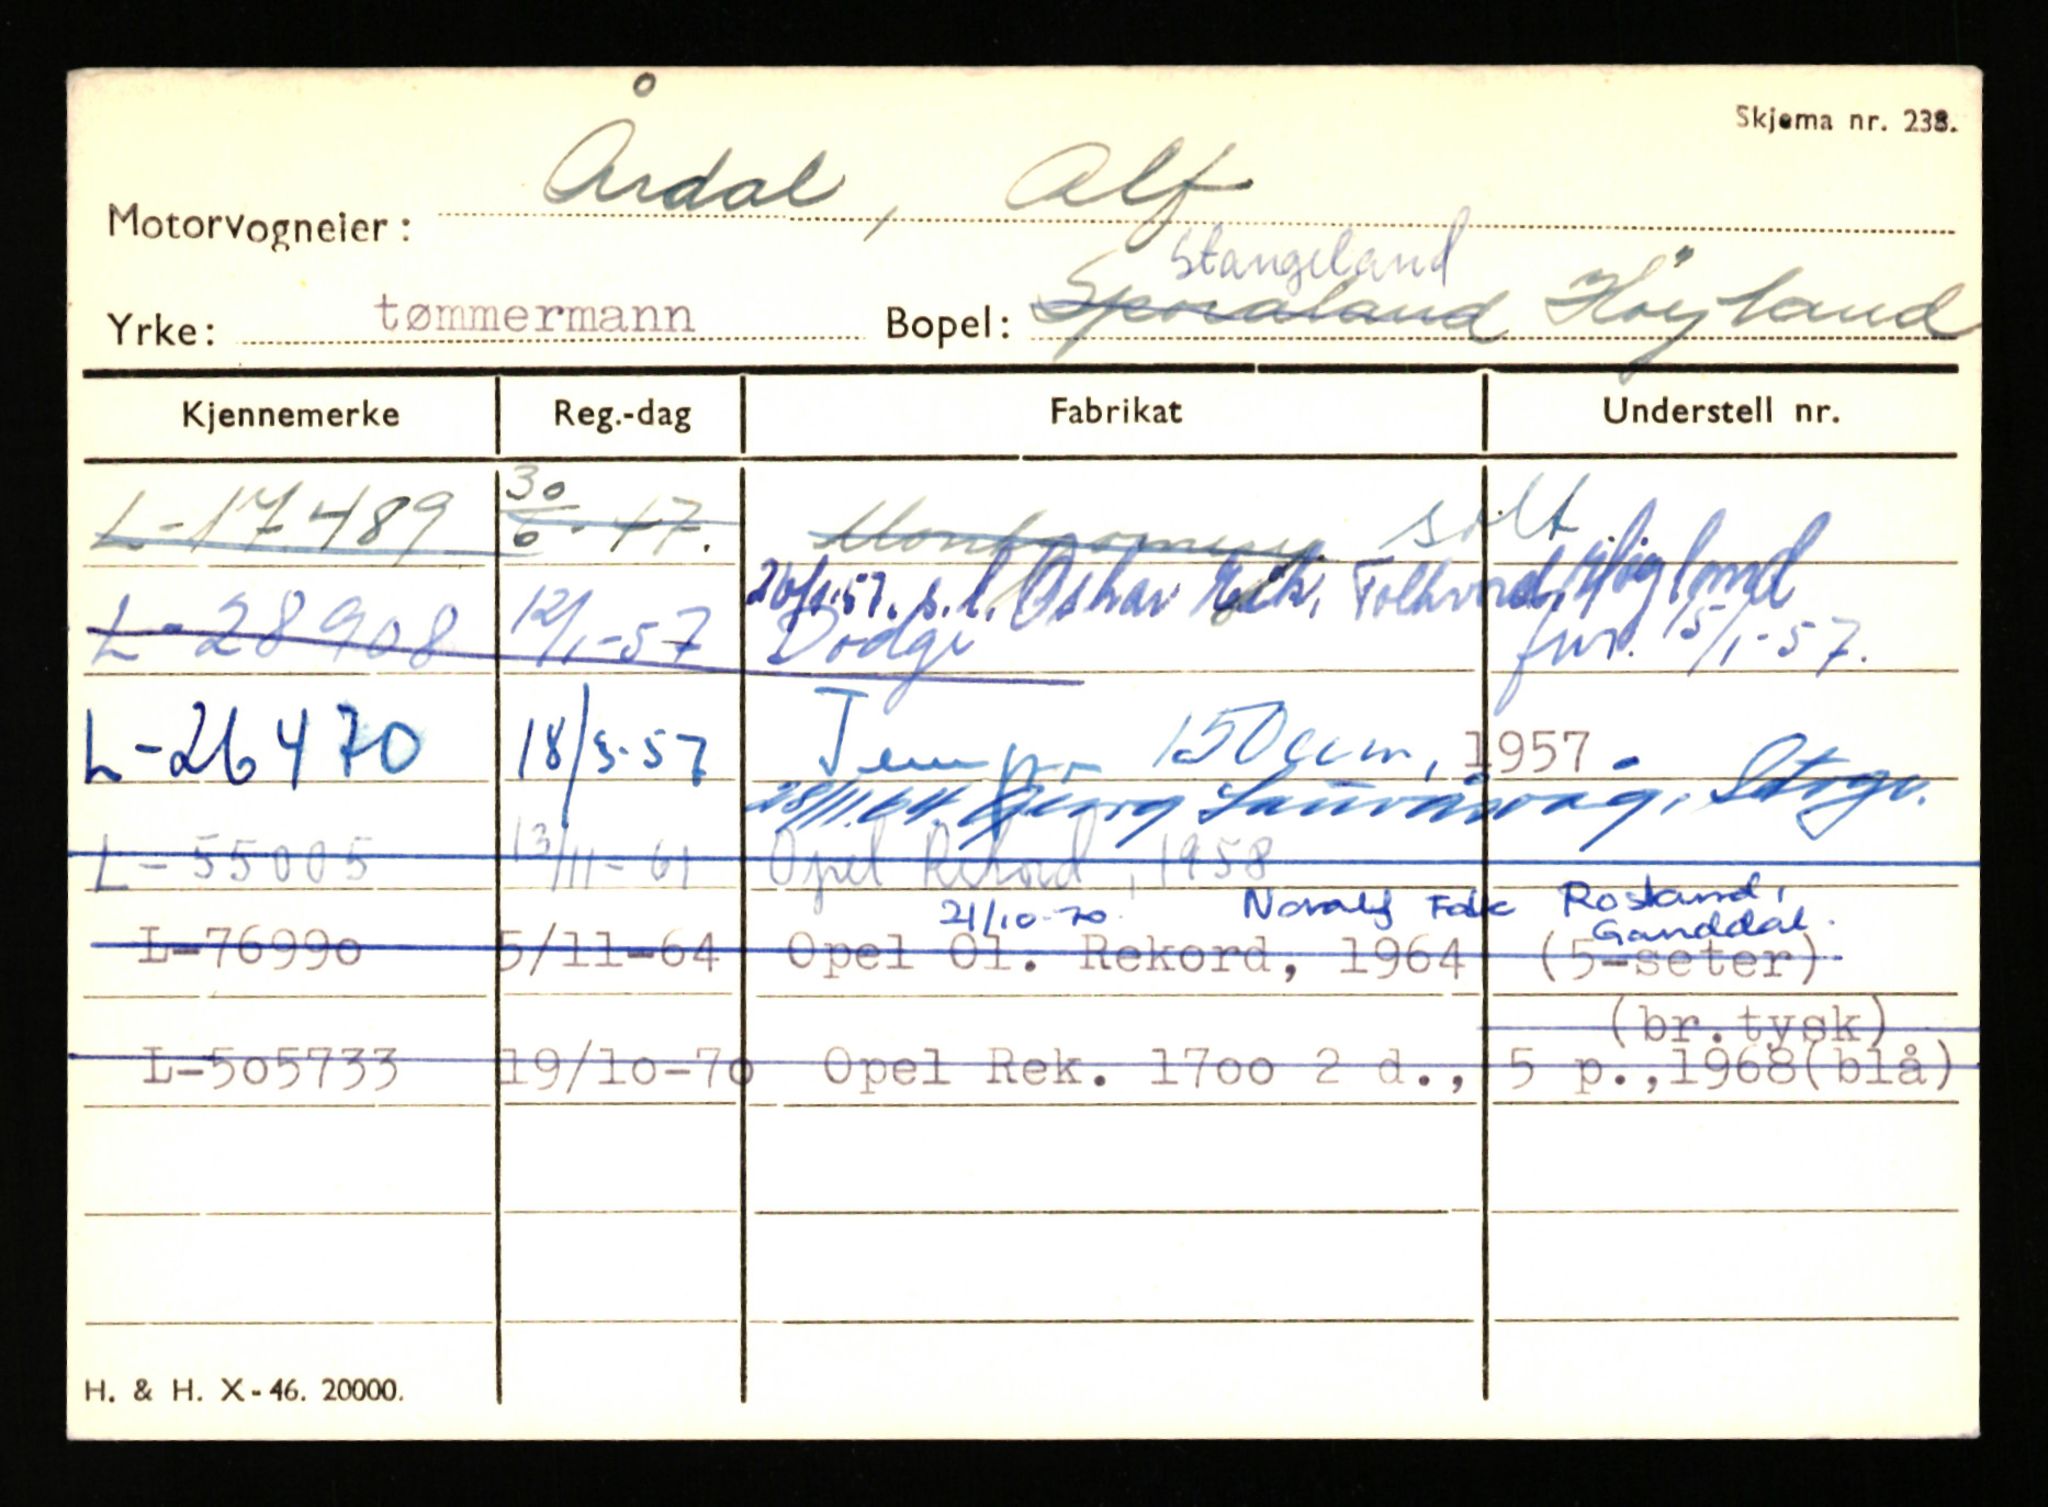 Skjema nr. 238.
Motorvogneier: Årdal, Alf
Stangeland
Yrke: tømmermann Bopel: Høyland
Kjennemerke Reg.-dag Fabrikat Understell nr.
L-17489 30/6-47. Montgomery solt
26/1-57. s.l. Oskar Eik, Folkvord, Høyland
L-28908 12/1-57 Dodge 15/1-57.
L-26470 18/3-57 Tempo 150ccm, 1957.
28/11.64. Georg
L-55005 13/11-61 Opel Rekord, 1958
21/10-70. Noralf Rosland,
Ganddal.
L-76990 5/11-64 Opel Ol. Rekord, 1964 (5-seter)
(br.tysk)
L-505733 19/10-70 Opel Rek. 1700 2 d., 5 p.,1968(blå)
H. & H. X-46. 20000.